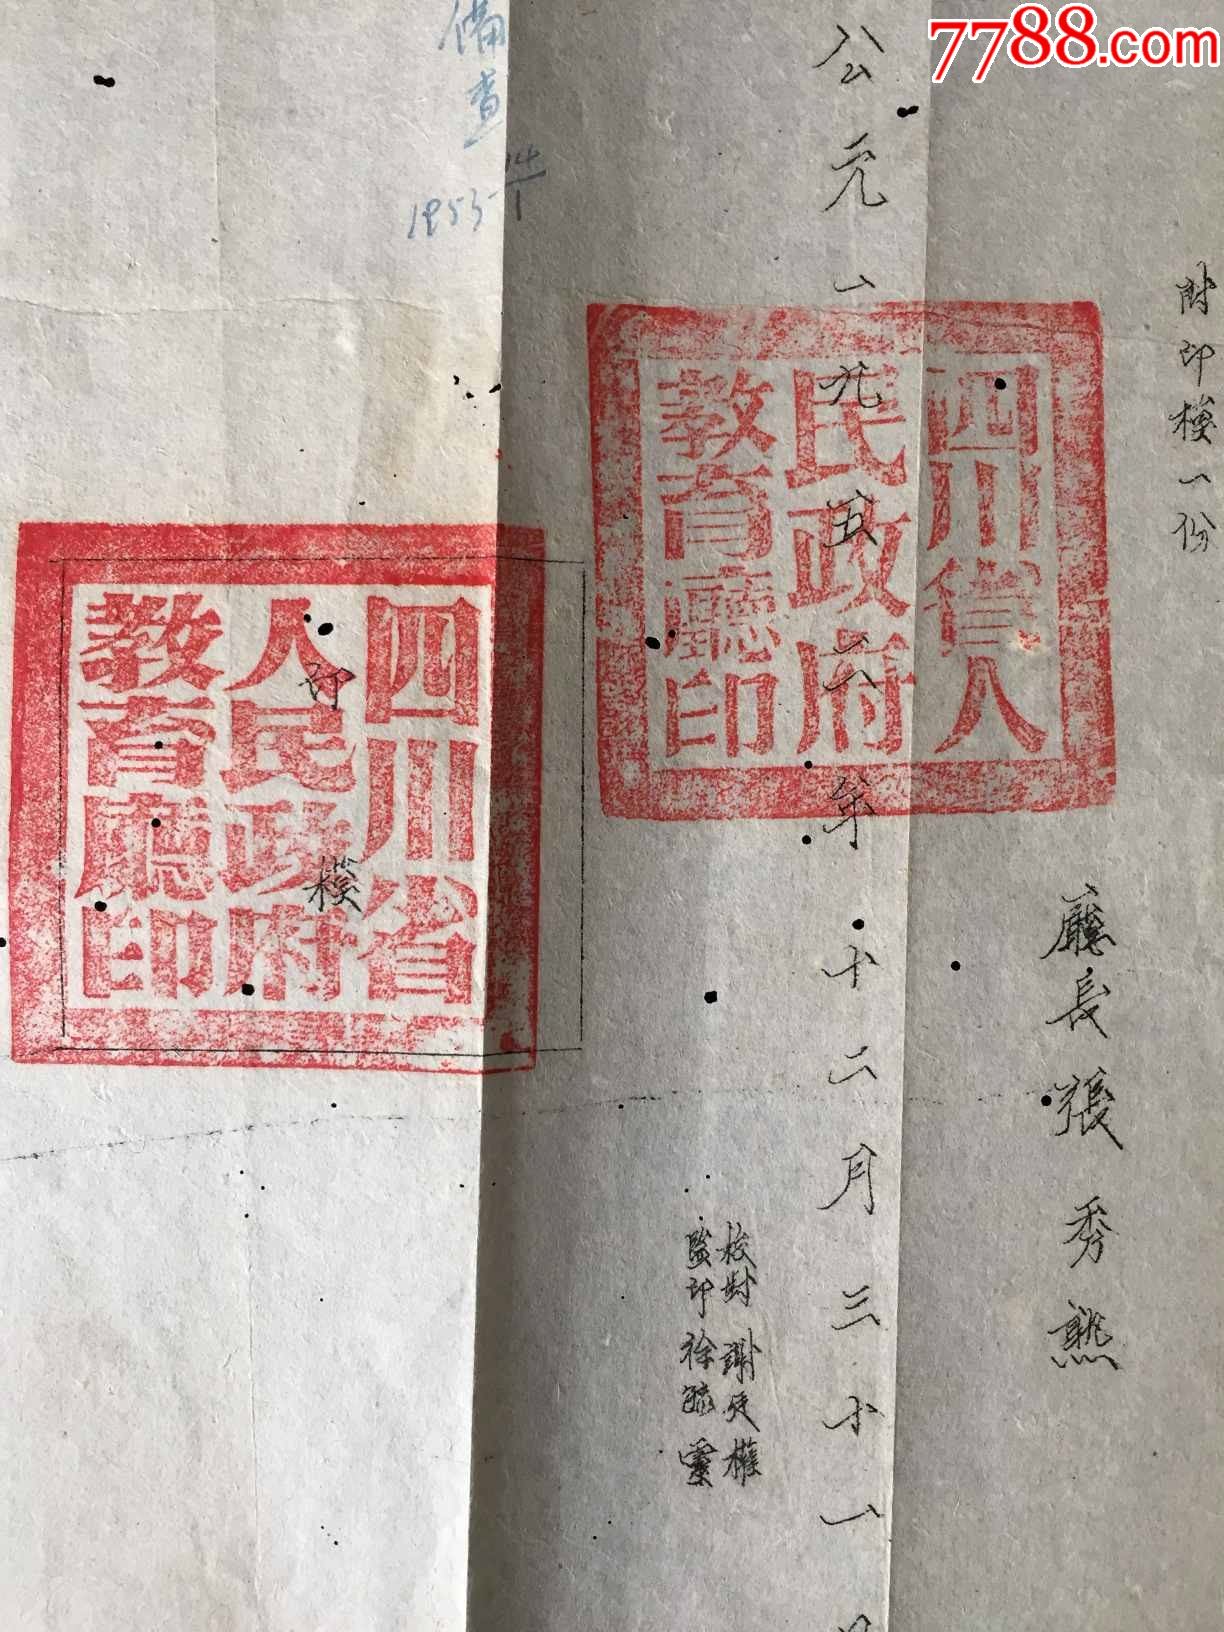 7788.com
附印模一份
廳長張秀熟
四川省人
民政府
教育廳印
公元一九五二年十二月三十一日
校對 謝
監印 徐
備查
1953 14/1
四川省
人民政府
教育廳印
印模